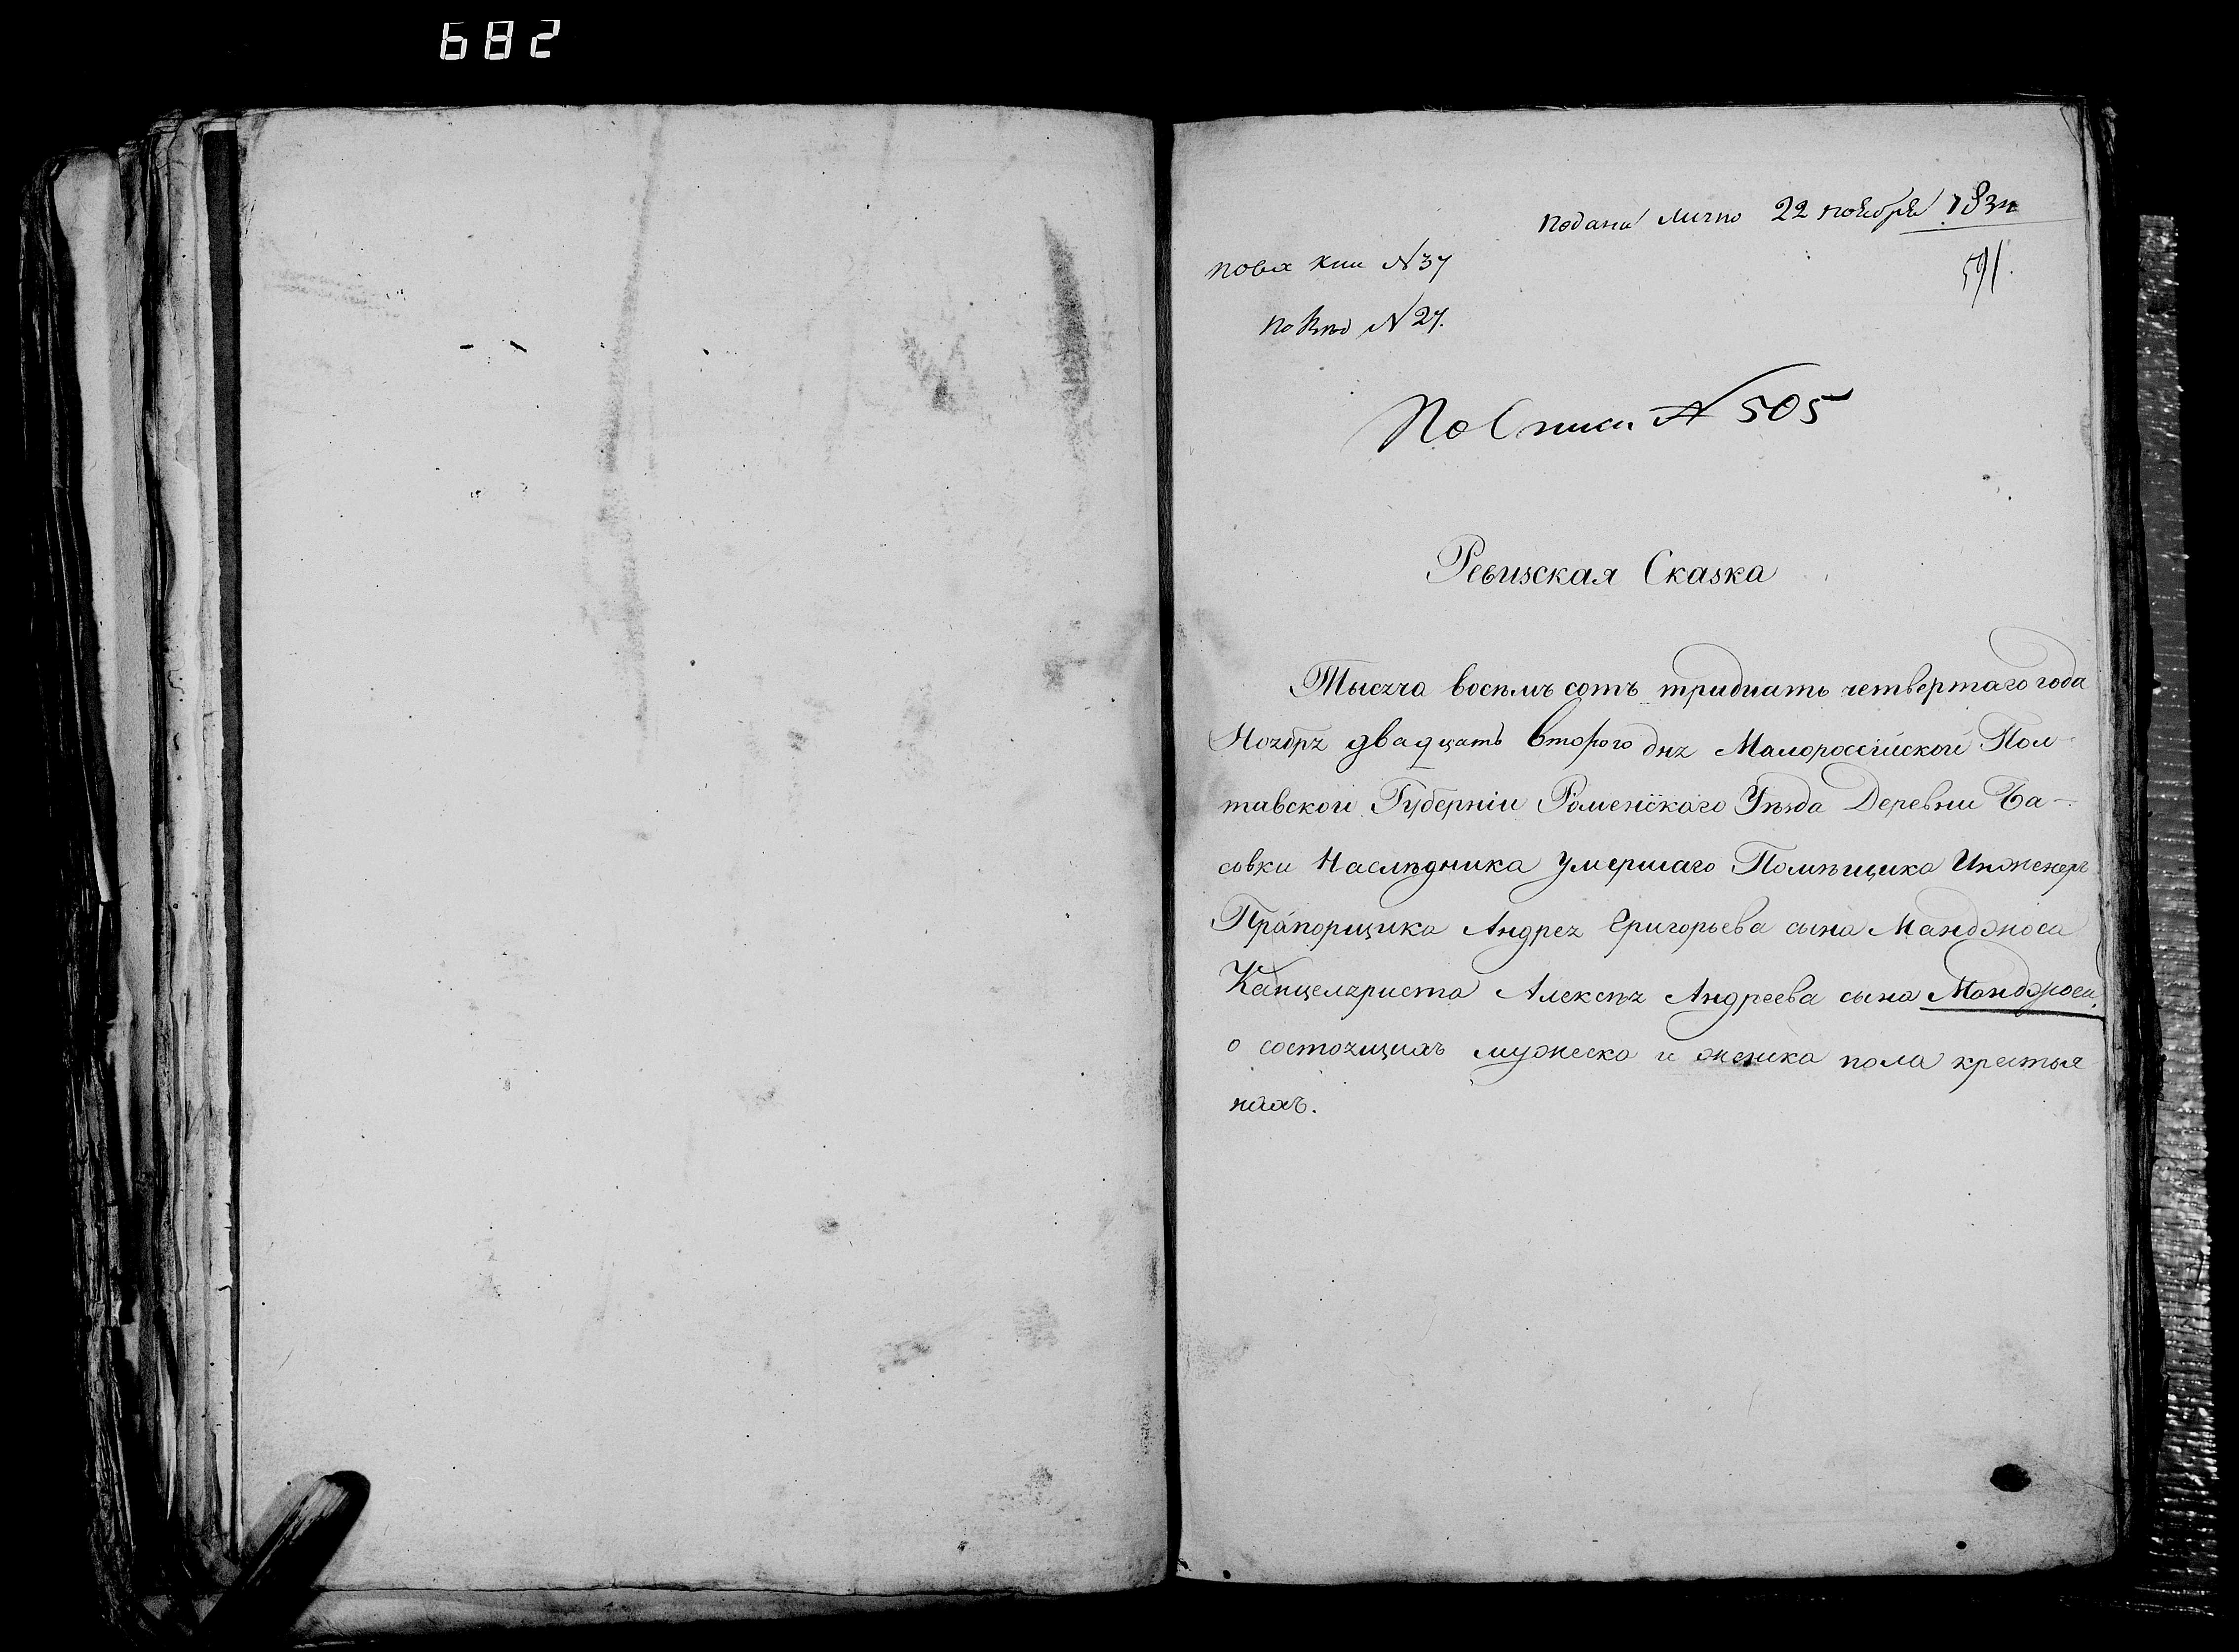 682
Подана лично 22 ноября 1834
591.
по вх кни №37
по Кни №27.
По Списк №505
Ревизская Сказка
Тысяча восемъ сотъ тридцать четвертаго года
Ноября двадцать второго дня Малороссійской Пол-
тавской Губерніи Роменскаго Уѣзда Деревни Ба-
совки Наслѣдника умершаго Помѣщика Инженеръ
Прапорщика Андрея Григорьева сына Мандэноса
Канцеляриста Алексѣя Андреева сына Мандэроса.
о состоящихъ мужеска и женска пола крестья
нахъ.